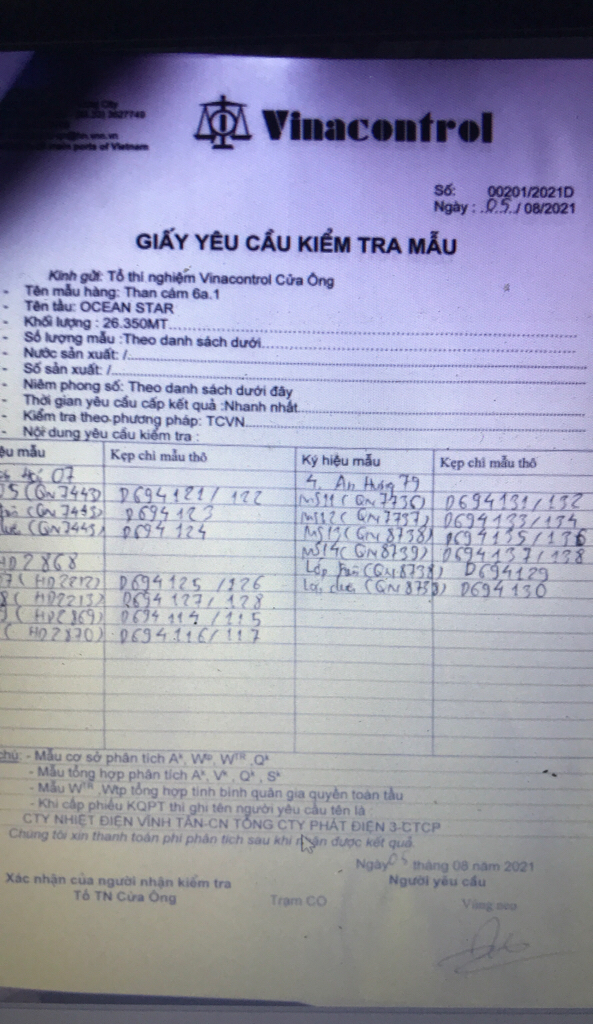 City
3627749
main ports of Vietnam
Vinacontrol
Số: 00201/2021D
Ngày : .05./ 08/2021
GIẤY YÊU CẦU KIỂM TRA MẪU
Kính gửi: Tổ thí nghiệm Vinacontrol Cửa Ông
- Tên mẫu hàng: Than cám 6a.1
- Tên tàu: OCEAN STAR
- Khối lượng : 26.350MT
- Số lượng mẫu :Theo danh sách dưới
- Nước sản xuất: /
- Số sản xuất: /
- Niêm phong số: Theo danh sách dưới đây
- Thời gian yêu cầu cấp kết quả :Nhanh nhất
- Kiểm tra theo phương pháp: TCVN
- Nội dung yêu cầu kiểm tra :
ệu mẫu Kẹp chì mẫu thô Ký hiệu mẫu Kẹp chì mẫu thô
07 4. An Hưng 79
(QN7443) D694121/122 MS11 (QN7736) D694131/132
(QN7443) D694123 MS12 (QN7737) D694133/134
(QN7443) D694124 MS13 (QN8738) D694135/136
MS14 (QN8739) D694137/138
HD2868 (QN8738) D694129
(HD2212) D694125/126 (QN8738) D694130
(HD2213) D694127/128
(HD2869) D694114/115
(HD2870) D694116/117
chú: - Mẫu cơ sở phân tích Aᵏ, Wᵖ, Wᵀᴿ, Qᵏ
- Mẫu tổng hợp phân tích Aᵏ, Vᵏ, Qᵏ, Sᵏ
- Mẫu Wᵀᴿ, Wtp tổng hợp tính bình quân gia quyền toàn tàu
- Khi cấp phiếu KQPT thì ghi tên người yêu cầu tên là
CTY NHIỆT ĐIỆN VĨNH TÂN-CN TỔNG CTY PHÁT ĐIỆN 3-CTCP
Chúng tôi xin thanh toán phí phân tích sau khi nhận được kết quả.
Ngày 05 tháng 08 năm 2021
Xác nhận của người nhận kiểm tra Người yêu cầu
Tổ TN Cửa Ông Trạm CO